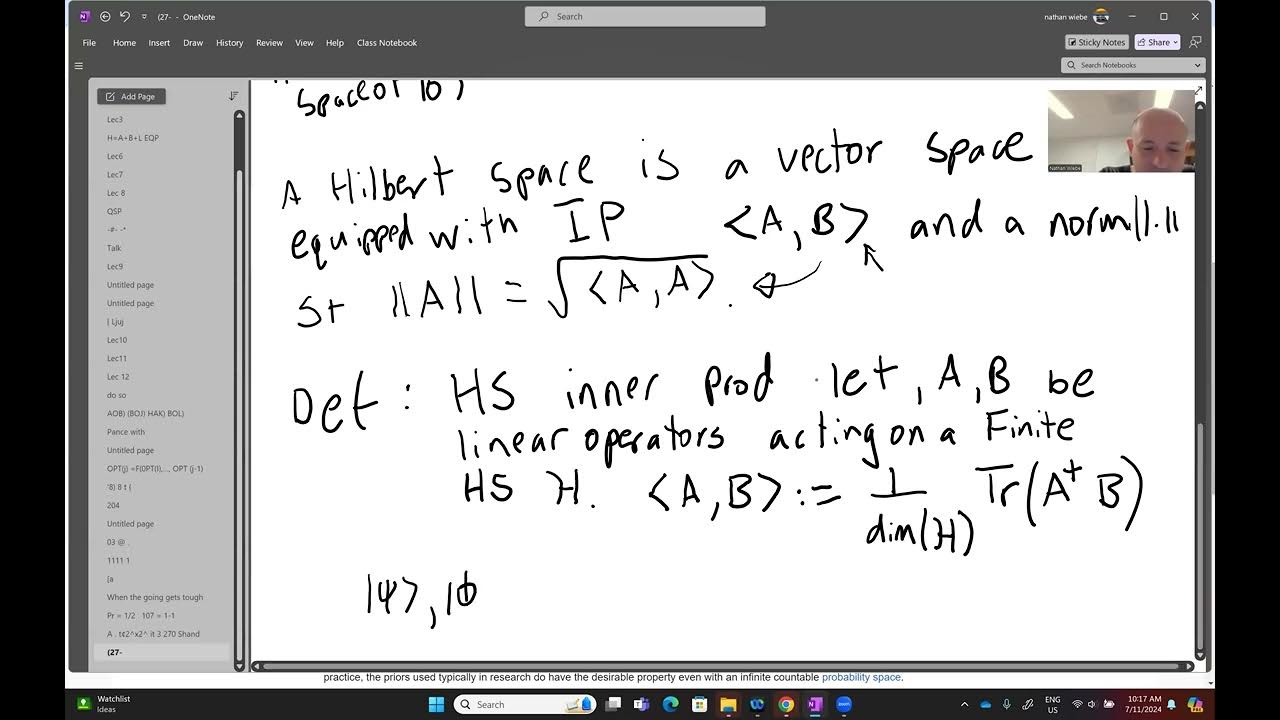 (27- - OneNote
Search
nathan wiebe
File Home Insert Draw History Review View Help Class Notebook
Sticky Notes Share
Search Notebooks
Add Page
Lec3
H=A+B+L EQP
Lec6
Lec7
Lec 8
QSP
-#- -*
Talk
Lec9
Untitled page
Untitled page
[ Ljuj
Lec10
Lec11
Lec 12
do so
AOB) (BOJ) HAK) BOL)
Pance with
Untitled page
OPT(j) =F(0PT(I),..., OPT (j-1)
'8) 8 t (
204
Untitled page
03 @ .
1111 1
[a
When the going gets tough
Pr = 1/2 107 = 1-1
A . t¢2^x2^ it 3 270 Shand
(27-
A Hilbert space is a vector space
equipped with IP <A, B> and a norm ||·||
st ||A|| = √<A, A>.
Def: HS inner prod let, A, B be
linear operators acting on a Finite
HS H. <A, B> := 1/dim(H) Tr(A† B)
|ψ>, |ϕ
Nathan Wiebe
practice, the priors used typically in research do have the desirable property even with an infinite countable probability space.
Watchlist
Ideas
Search
ENG
US
10:17 AM
7/11/2024